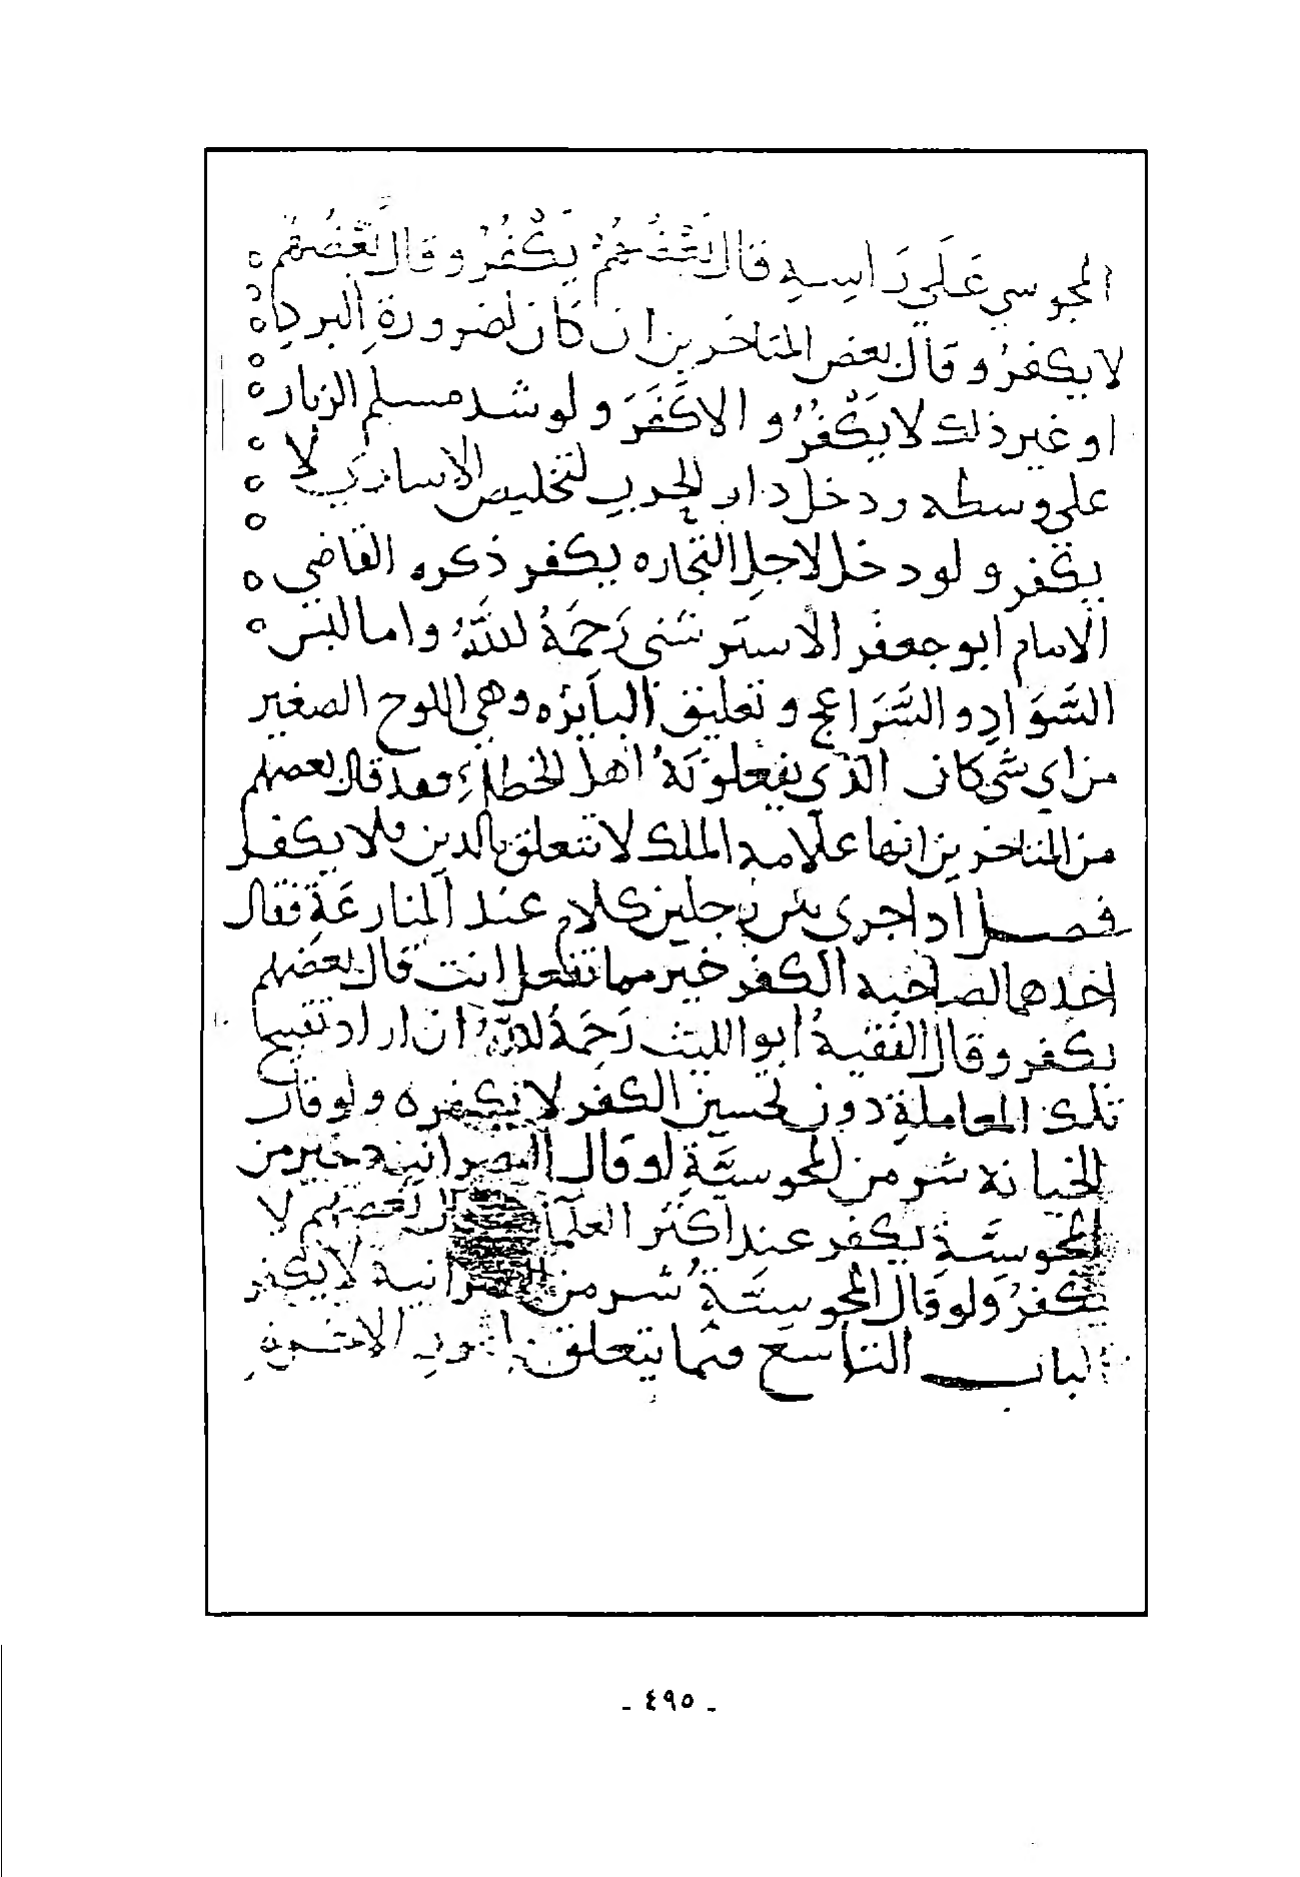 المجوسي عَلَى رَاسِهِ قال بَعْضُهُمْ يَكْفُرُ وقال بَعْضُهُمْ ه
لا يكفرُ وقال بعض المتاخرين ان كان لضرورة البرد ه
او غير ذلك لا يَكْفُرُ و الا كَفَرَ ولو شد مسلم الزنار ه
على وسطه ودخل دار الحرب لتخليص الاسارى لا ه
يكفر ولو دخل لاجل التجاره يكفر ذكره القاضي ه
الامام ابو جعفر الاستروشني رَحِمَهُ اللهُ واما لبس ه
السَّوَادِ والسَّرَاغج وتعليق البايزه وهي اللوح الصغير
من اي شي كان الذي يفعلونهُ اهل الخطاء فقد قال بعضهم
من المتاخرين انها علامه الملك لا تتعلق بالدين فلا يكفر
فصل اذا جرى بين رجلين كلام عند المنازعَةِ فقال
احدهما لصاحبه الكفر خير مما تفعل انت قال بعضهم
يكفر وقال الفقيهُ ابو الليث رَحِمَهُ اللهُ ان اراد تقبيح
تلك المعاملةِ دون تحسين الكفر لا يكفر ه ولو قال
الخيانه شر من المجوسيَّةِ او قال النصرانيه خير من
المجوسيَّةِ يكفر عند اكثر العلما وقال بعضهم لا
يكفرُ ولو قال المجوسيَّةُ شر من النصرانية لا يكفر
الباب التاسع فيما يتعلق بامور الاخرة
- ٤٩٥ -